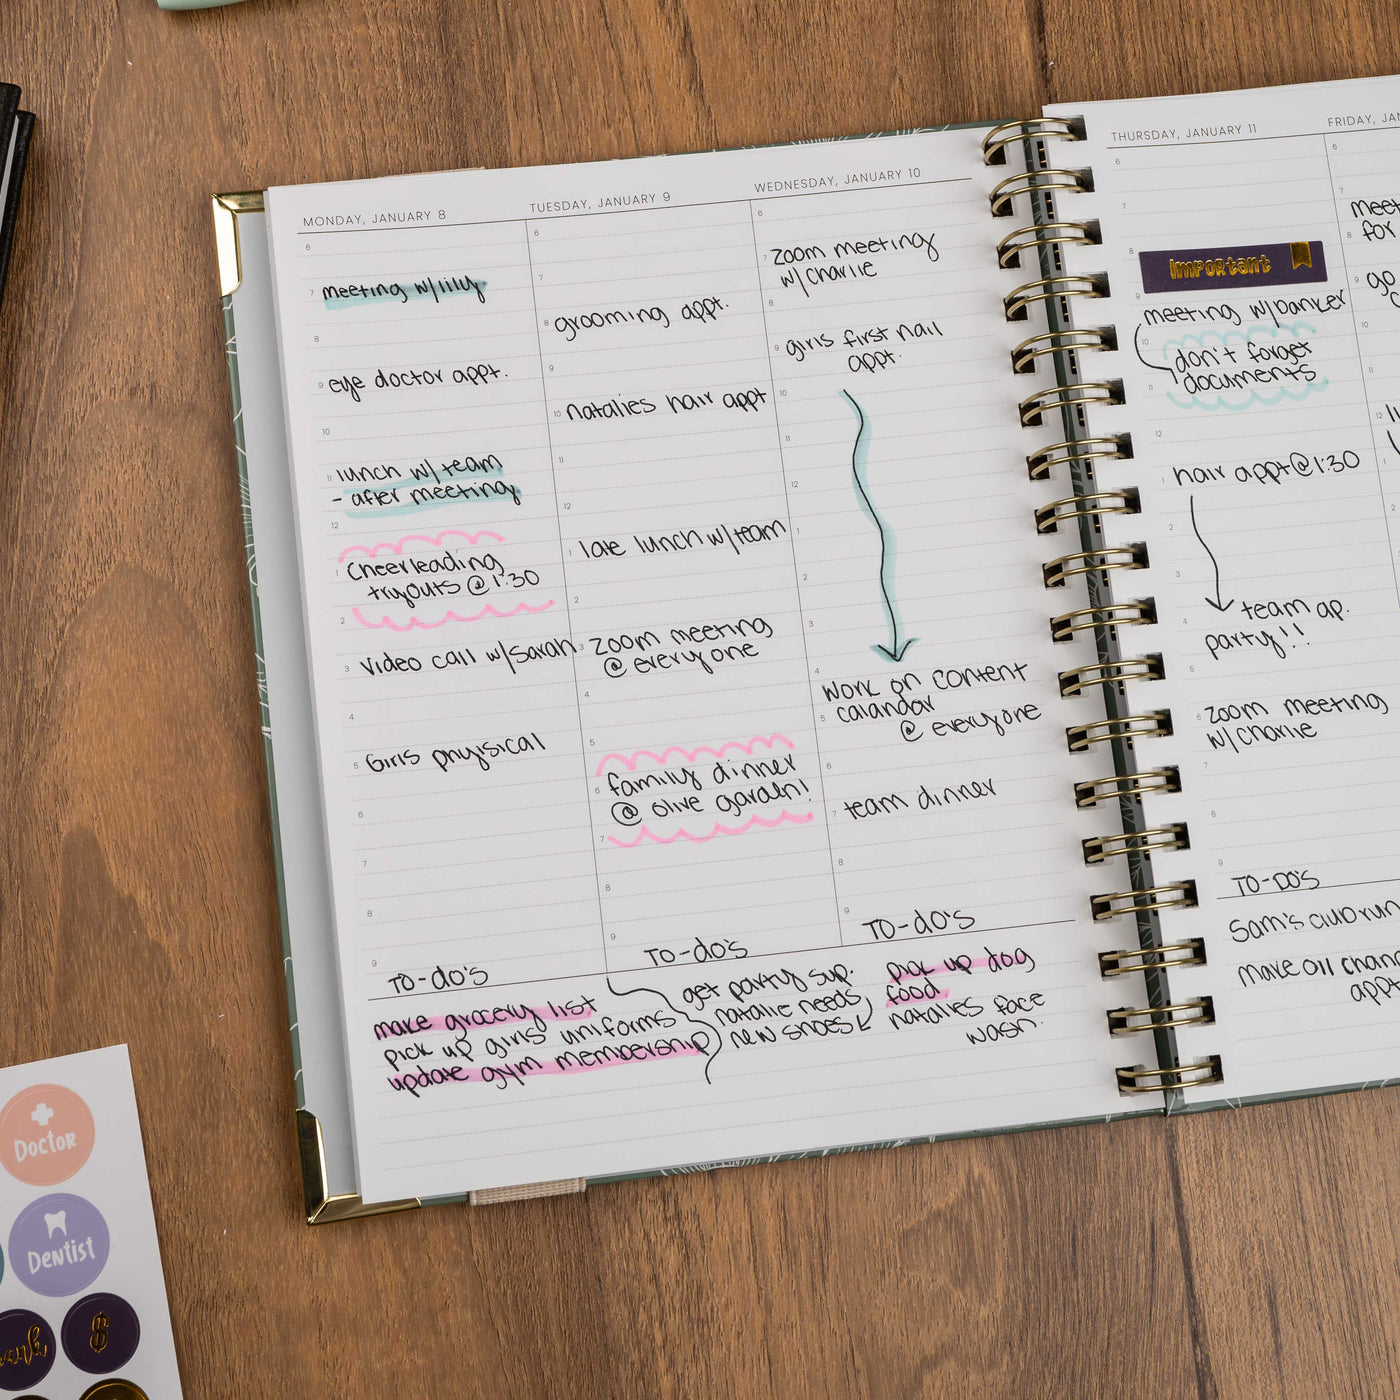 MONDAY, JANUARY 8
6
7 meeting w/lily
8
9 eye doctor appt.
10
11 lunch w/ team
- after meeting
12
1 Cheerleading
tryouts @ 1:30
2
3 Video call w/Sarah
4
5 Girls phyisical
6
7
8
9
TO-do's
make grocery list
pick up girls uniforms
update gym membership
TUESDAY, JANUARY 9
6
7
8 grooming appt.
9
10 natalies hair appt
11
12
1 late lunch w/team
2
3 Zoom meeting
@ everyone
4
5
6 family dinner
@ olive garden!
7
8
9
TO-do's
get party sup.
natalie needs
new shoes
WEDNESDAY, JANUARY 10
6
7 Zoom meeting
w/ Charlie
8
9 girls first nail
appt.
10
11
12
1
2
3
4
work on content
5 calandar
@ everyone
6
7 team dinner
8
9
TO-do's
pick up dog
food
natalies face
wash.
THURSDAY, JANUARY 11
6
7
8
Important
9
meeting w/banker
10
don't forget
11 documents
12
1 hair appt@1:30
2
3
4 team ap.
party!!
5
6 Zoom meeting
w/Charlie
7
8
9
TO-DO'S
Sam's club run
make oil chan
appt
FRIDAY, JAN
6
7
meet
8 for
9 go
10
12
1
2
Doctor
Dentist
$